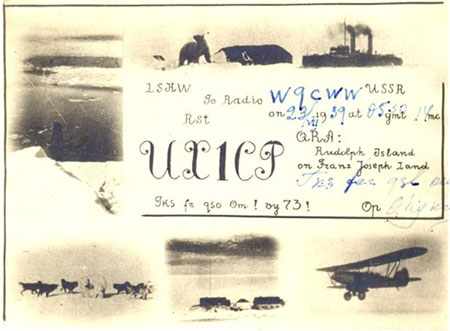 1SHW To Radio W9CWW USSR
Rst on 23/VII 1939 at 05.50 gmt 14 mc
QRA:
UX1CP Rudolph Island
on Franz Joseph Land
Tks fer qsl
Tks fr qso Om! vy 73! Op